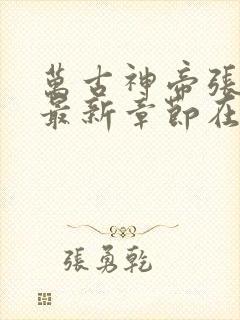 萬古神帝張
最新章節在
張勇乾